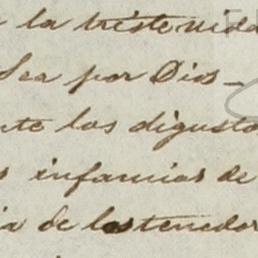 la triste vida
Sea por Dios_
los digusto
infamias de
de los tenedor